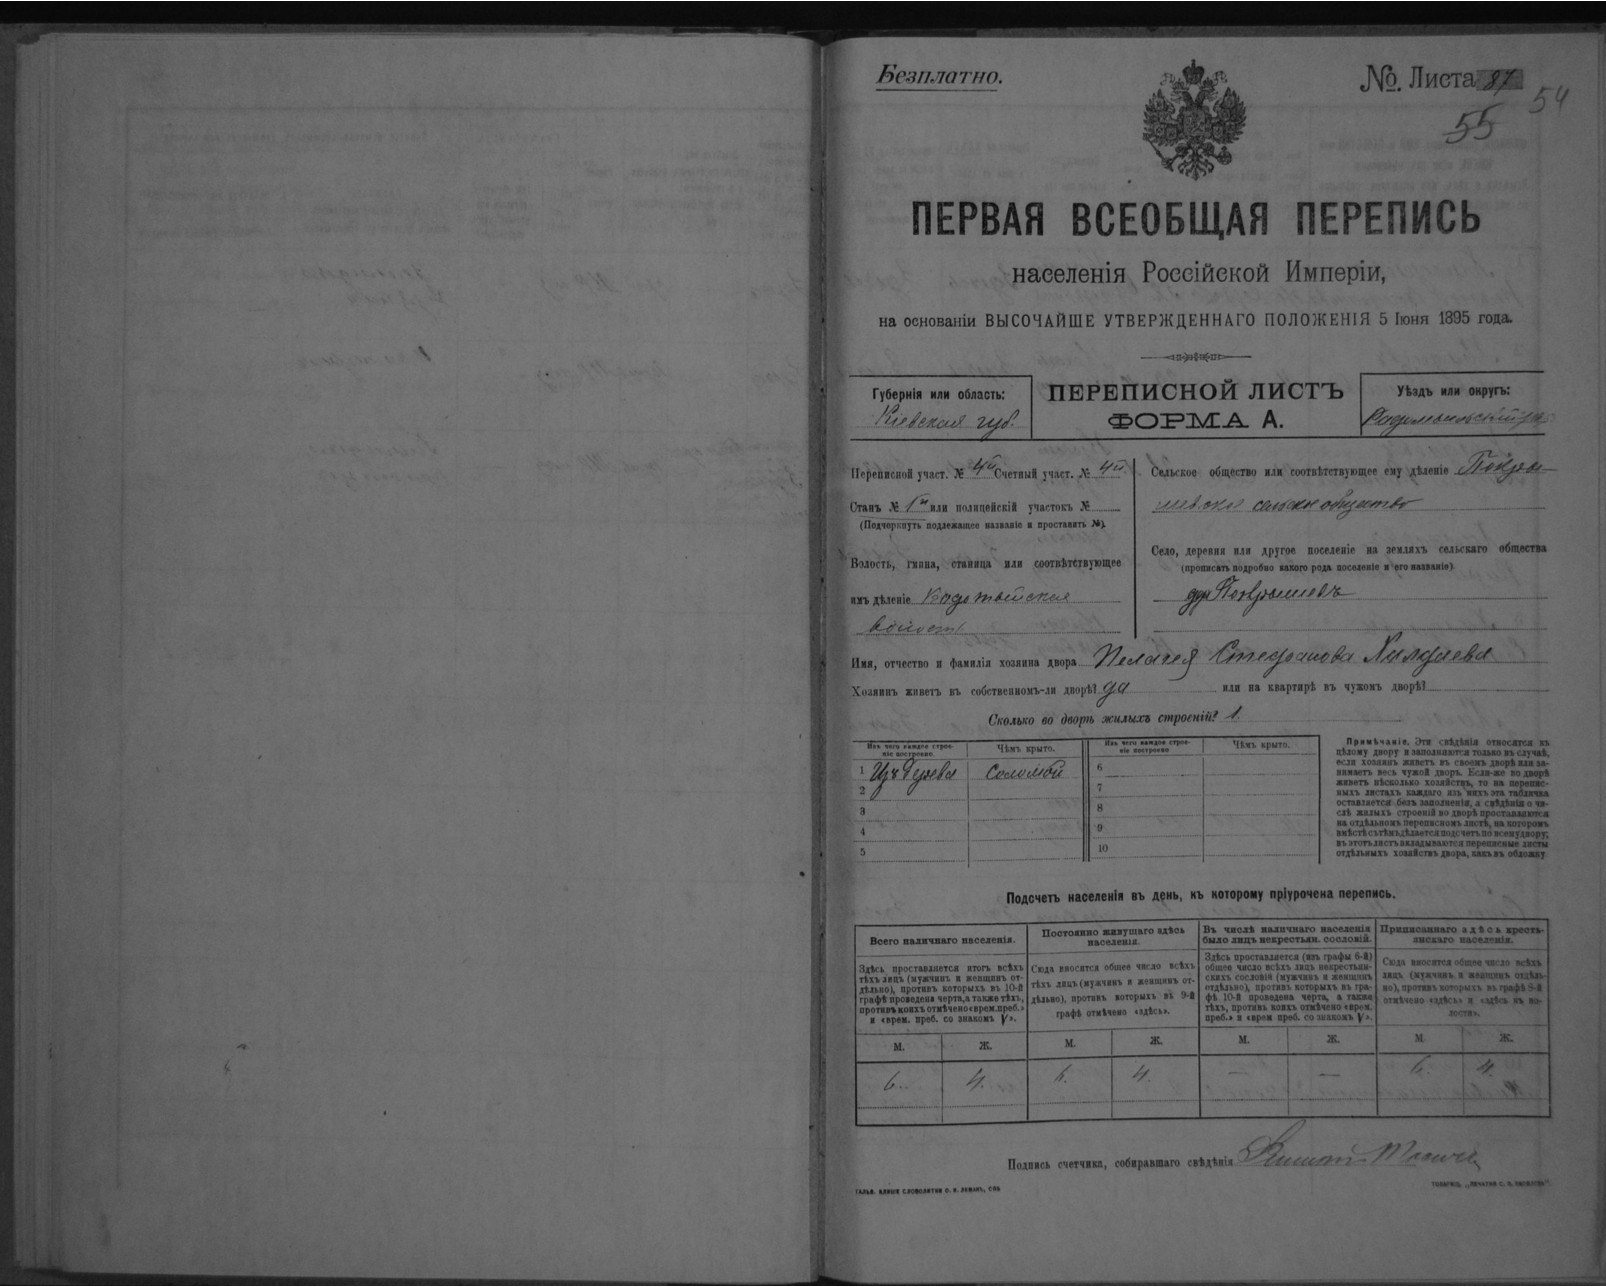 Безплатно.
№. Листа 87
55 54
ПЕРВАЯ ВСЕОБЩАЯ ПЕРЕПИСЬ
населенія Россійской Имперіи,
на основаніи ВЫСОЧАЙШЕ УТВЕРЖДЕННАГО ПОЛОЖЕНІЯ 5 Іюня 1895 года.
Губернія или область:
Кіевская губ.
ПЕРЕПИСНОЙ ЛИСТЪ
ФОРМА А.
Уѣздъ или округъ:
Радомысльскій
Переписной участ. № 4й Счетный участ. № 4й
Станъ № 1й или полицейскій участокъ №
(Подчеркнуть подлежащее названіе и проставить №).
Волость, гмина, станица или соотвѣтствующее
имъ дѣленіе
волость
Сельское общество или соотвѣтствующее ему дѣленіе Покры-
шевское сельское общество
Село, деревня или другое поселеніе на земляхъ сельскаго общества
(прописать подробно какого рода поселеніе и его названіе)
дер. Покрышевъ
Имя, отчество и фамилія хозяина двора Пелагея Стефанова
Хозяинъ живетъ въ собственномъ-ли дворѣ? да или на квартирѣ въ чужомъ дворѣ?
Сколько во дворѣ жилыхъ строеній? 1.
Изъ чего каждое строе-
ніе построено
Чѣмъ крыто.
Изъ чего каждое строе-
ніе построено
Чѣмъ крыто.
1 Изъ дерева соломой
2
3
4
5
6
7
8
9
10
Примѣчаніе. Эти свѣдѣнія относятся къ
цѣлому двору и заполняются только въ случаѣ,
если хозяинъ живетъ въ своемъ дворѣ или за-
нимаетъ весь чужой дворъ. Если-же во дворѣ
живетъ нѣсколько хозяйствъ, то на перепис-
ныхъ листахъ каждаго изъ нихъ эта табличка
оставляется безъ заполненія, а свѣдѣнія о чи-
слѣ жилыхъ строеній во дворѣ проставляются
на отдѣльномъ переписномъ листѣ, на которомъ
вмѣстѣ съ тѣмъ дѣлается подсчетъ по всему двору;
въ этотъ листъ вкладываются переписные листы
отдѣльныхъ хозяйствъ двора, какъ въ обложку
Подсчетъ населенія въ день, къ которому пріурочена перепись.
Всего наличнаго населенія.
Здѣсь проставляется итогъ всѣхъ
тѣхъ лицъ (мужчинъ и женщинъ от-
дѣльно), противъ которыхъ въ 10-й
графѣ проведена черта, а также тѣхъ,
противъ коихъ отмѣчено «врем. преб.»
и «врем. преб. со знакомъ V».
Постоянно живущаго здѣсь
населенія.
Сюда вносится общее число всѣхъ
тѣхъ лицъ (мужчинъ и женщинъ от-
дѣльно), противъ которыхъ въ 9-й
графѣ отмѣчено «здѣсь».
Въ числѣ наличнаго населенія
было лицъ некрестьян. сословій.
Здѣсь проставляется (изъ графы 6-й)
общее число всѣхъ лицъ некрестьян-
скихъ сословій (мужчинъ и женщинъ
отдѣльно), противъ которыхъ въ гра-
фѣ 10-й проведена черта, а также
тѣхъ, противъ коихъ отмѣчено «врем.
преб.» и «врем преб. со знакомъ V».
Приписаннаго здѣсь кресть-
янскаго населенія.
Сюда вносится общее число всѣхъ
лицъ (мужчинъ и женщинъ отдѣль-
но), противъ которыхъ въ графѣ 8-й
отмѣчено «здѣсь» и «здѣсь въ во-
лости».
М. Ж. М. Ж. М. Ж. М. Ж.
6. 4. 6. 4. — — 6. 4.
Подпись счетчика, собиравшаго свѣдѣнія
ГАЛЬВ. КЛИШЕ СЛОВОЛИТНИ О. И. ЛЕМАНЪ, СПБ